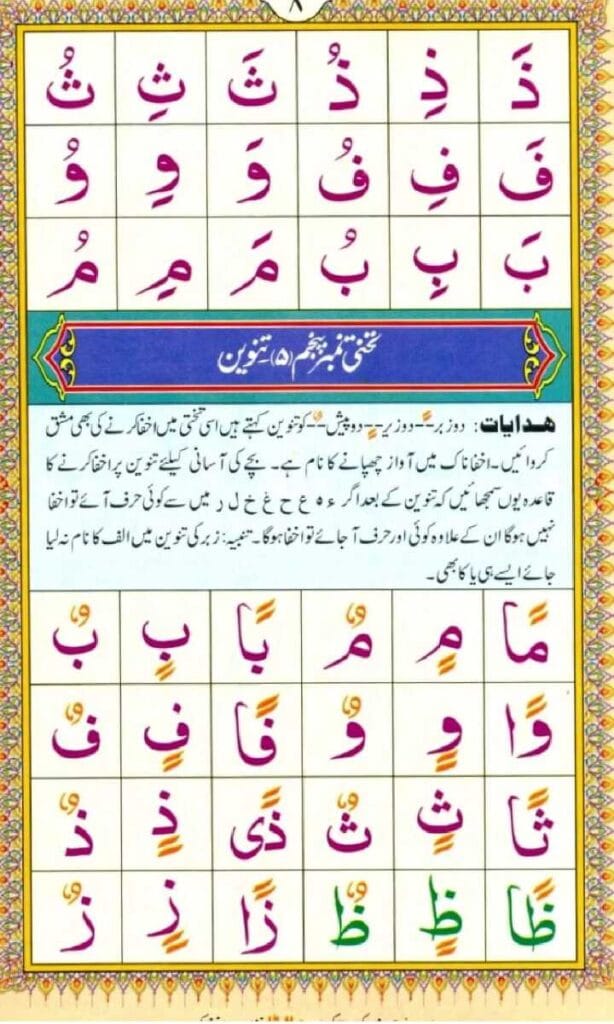 ۸
ذَ ذِ ذُ ثَ ثِ ثُ
فَ فِ فُ وَ وِ وُ
بَ بِ بُ مَ مِ مُ
تختی نمبر پنجم (۵) تنوین
ھدایات: دو زبر ـًـ دو زیر ـٍـ دو پیش ـٌـ کو تنوین کہتے ہیں اسی تختی میں اخفا کرنے کی بھی مشق
کروائیں۔ اخفا ناک میں آواز چھپانے کا نام ہے۔ بچے کی آسانی کیلئے تنوین پر اخفا کرنے کا
قاعدہ یوں سمجھائیں کہ تنوین کے بعد اگر ء ہ ع ح غ خ ل ر میں سے کوئی حرف آئے تو اخفا
نہیں ہوگا ان کے علاوہ کوئی اور حرف آ جائے تو اخفا ہوگا۔ تنبیہ: زبر کی تنوین میں الف کا نام نہ لیا
جائے ایسے ہی یا کا بھی۔
مًا مٍ مٌ بًا بٍ بٌ
وًا وٍ وٌ فًا فٍ فٌ
ثًا ثٍ ثٌ ذًی ذٍ ذٌ
ظًا ظٍ ظٌ زًا زٍ زٌ